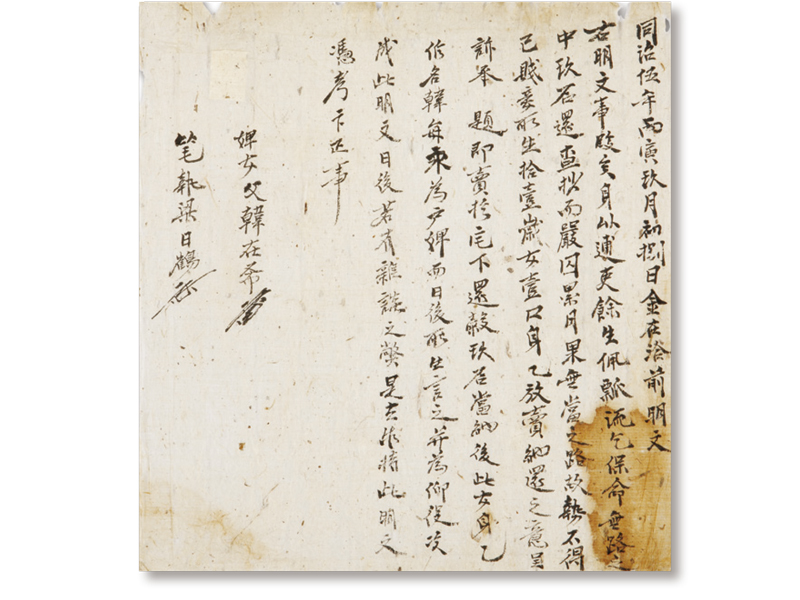 同治伍年丙寅玖月初捌日金在浴前明文
右明文事段矣身以逋吏餘生佩瓢流乞保命無路之
中玖石還查抄而嚴囚累月果無當之路故勢不得
已賤妾所生拾壹歲女壹口身乙放賣納還之意呈
訴奉 題即賣於宅下還穀玖石當納後此女身乙
作名韓每乘爲戶婢而日後所生言之幷爲仰役次
成此明文日後若有雜談之弊是去乙等將此明文
憑考卞正事
婢女父韓在希
笔執梁日鶴